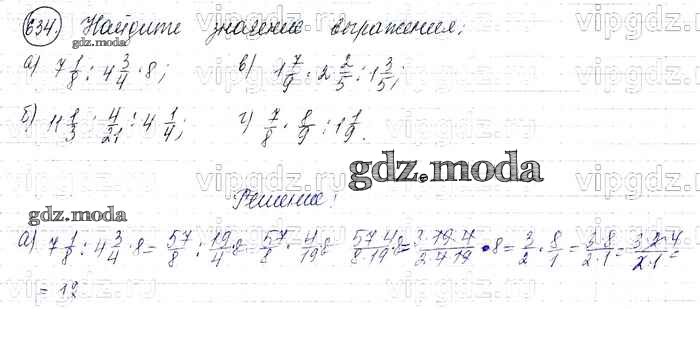 634. Найдите значение выражения:
gdz.moda
а) 7 1/8 : 4 3/4 · 8; в) 1 7/9 : 2 2/5 : 1 3/5;
б) 11 1/3 : 4/21 : 4 1/4; г) 7/8 · 8/9 : 1 1/9.
gdz.moda
Решение:
gdz.moda
а) 7 1/8 : 4 3/4 · 8 = 57/8 : 19/4 · 8 = 57/8 · 4/19 · 8 57·4/8·19 · 8 = 3·19·4/2·4·19 · 8 = 3/2 · 8/1 = 3·8/2·1 = 3·2·4/2·1 =
= 12